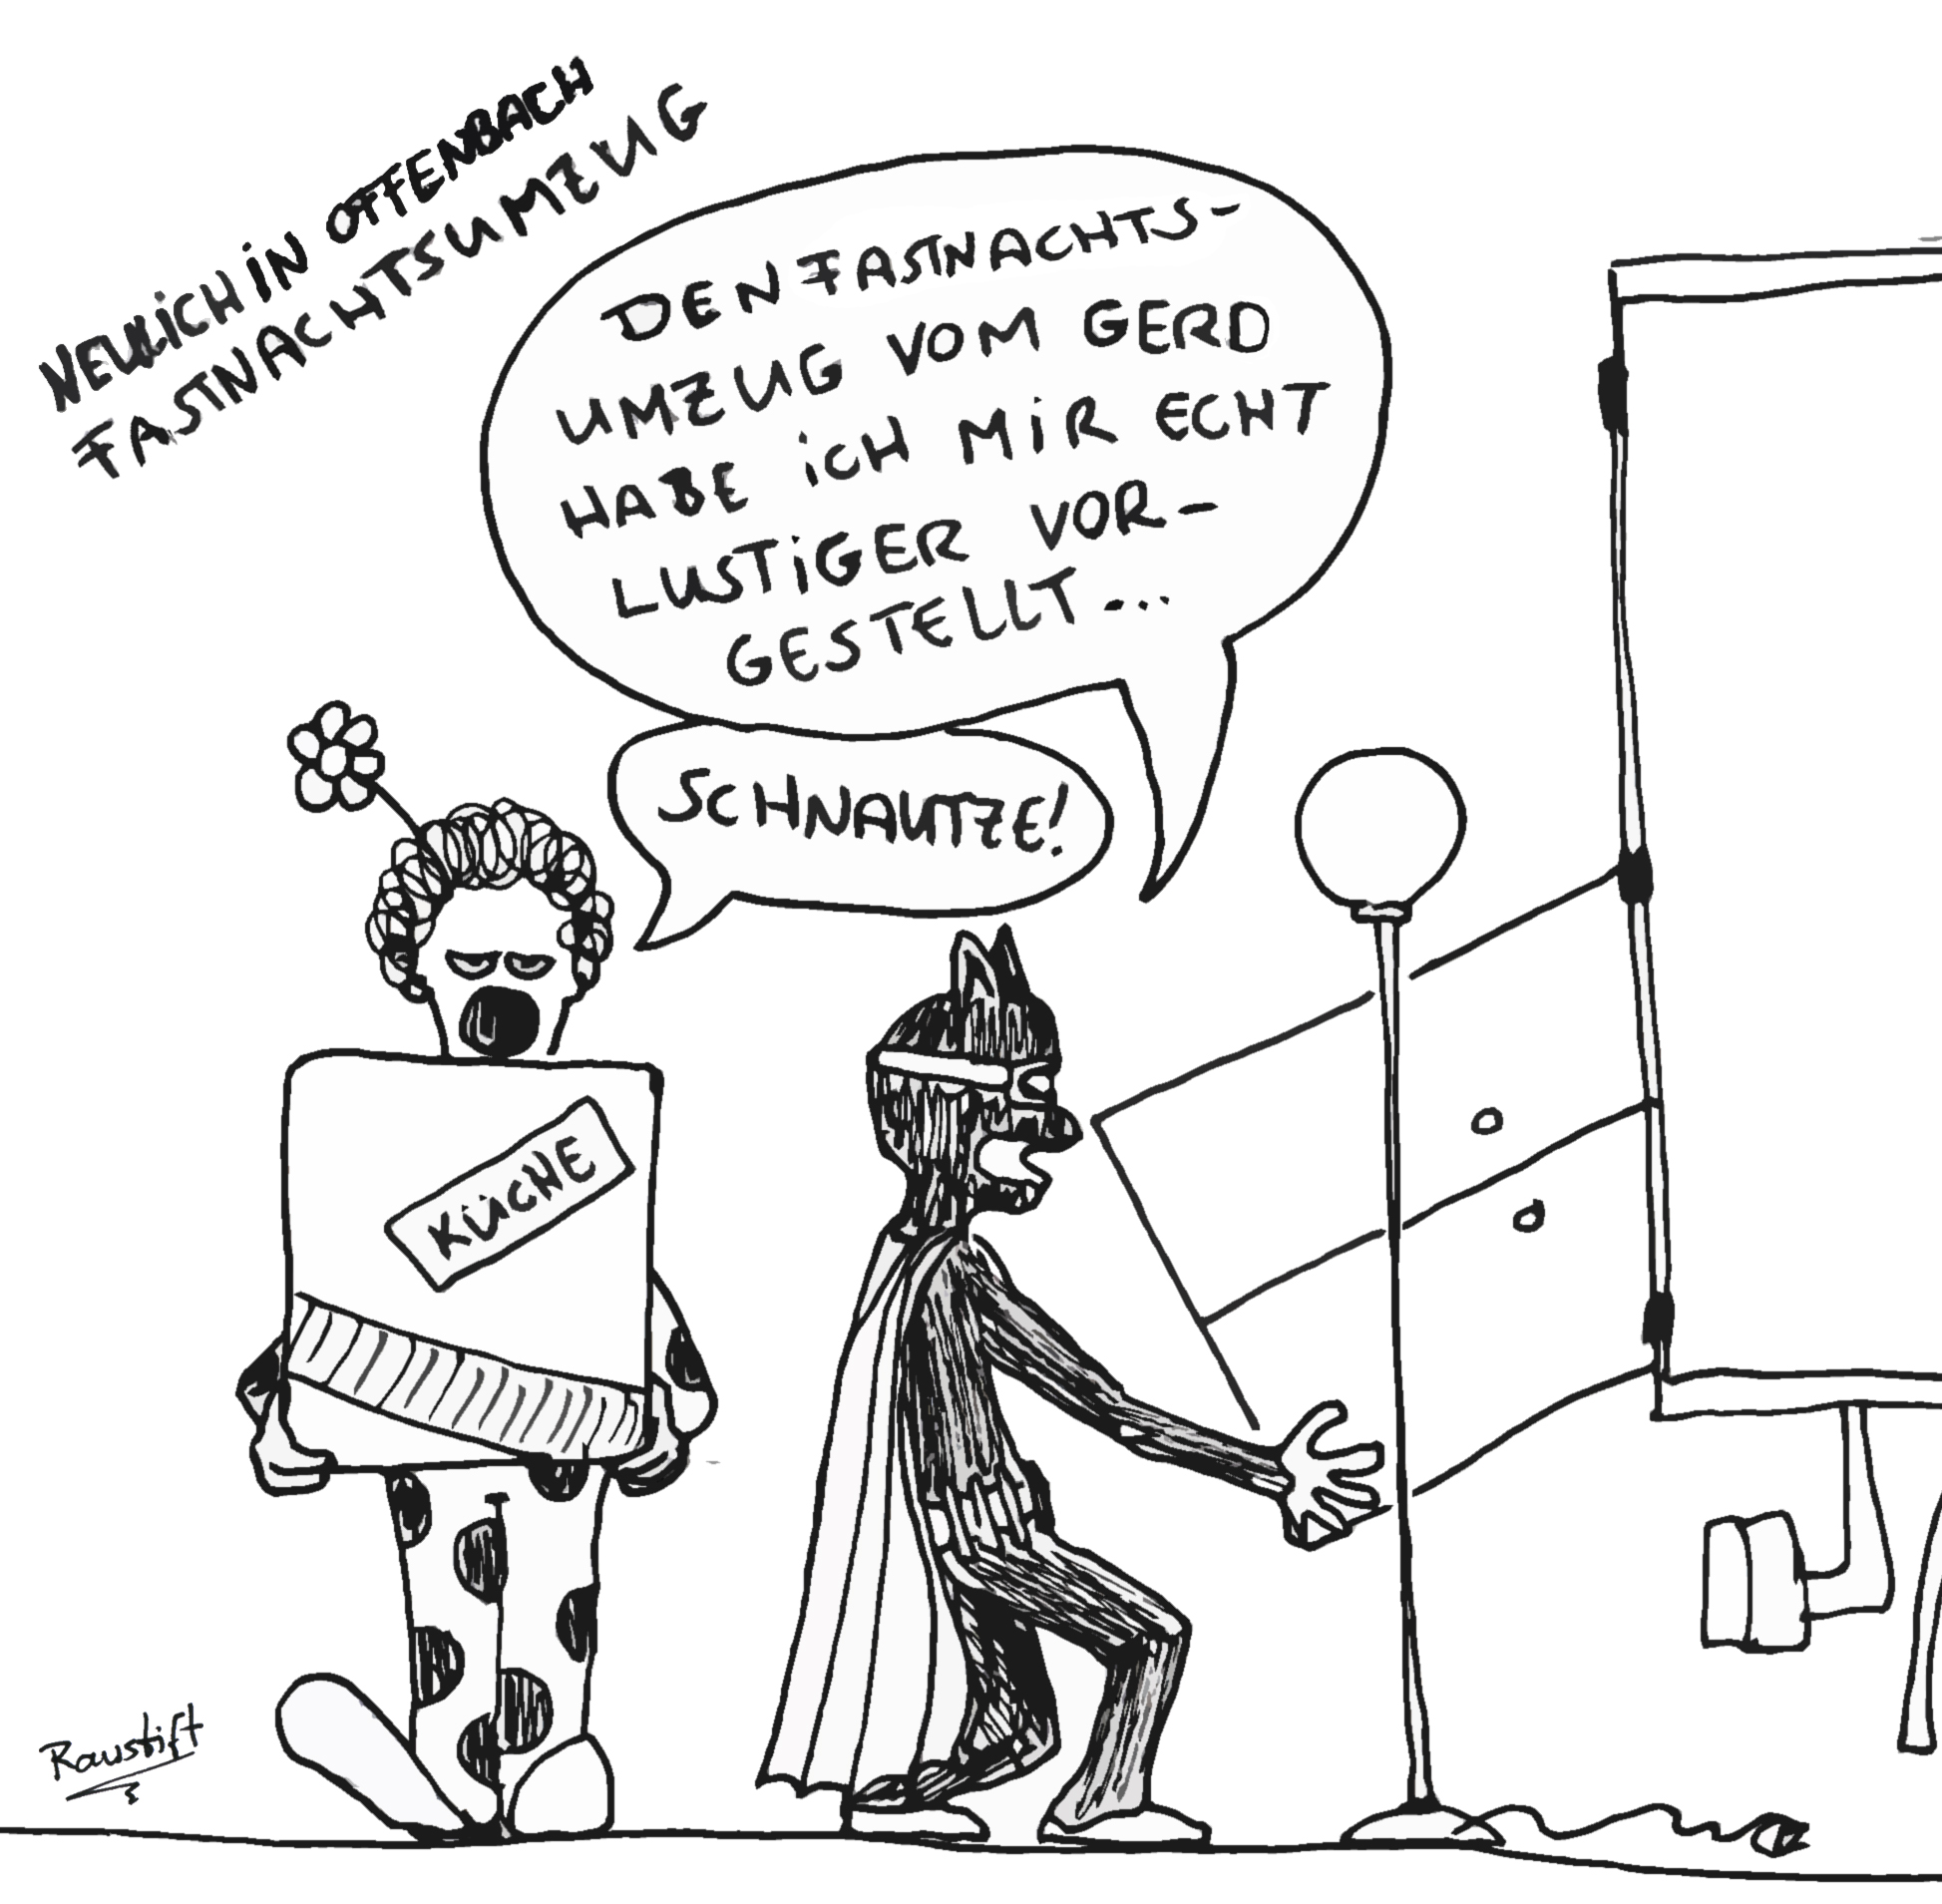 NEULICH IN OFFENBACH
FASTNACHTSUMZUG
DEN FASTNACHTS-
UMZUG VOM GERD
HABE ICH MIR ECHT
LUSTIGER VOR-
GESTELLT...
SCHNAUTZE!
KÜCHE
Raustift